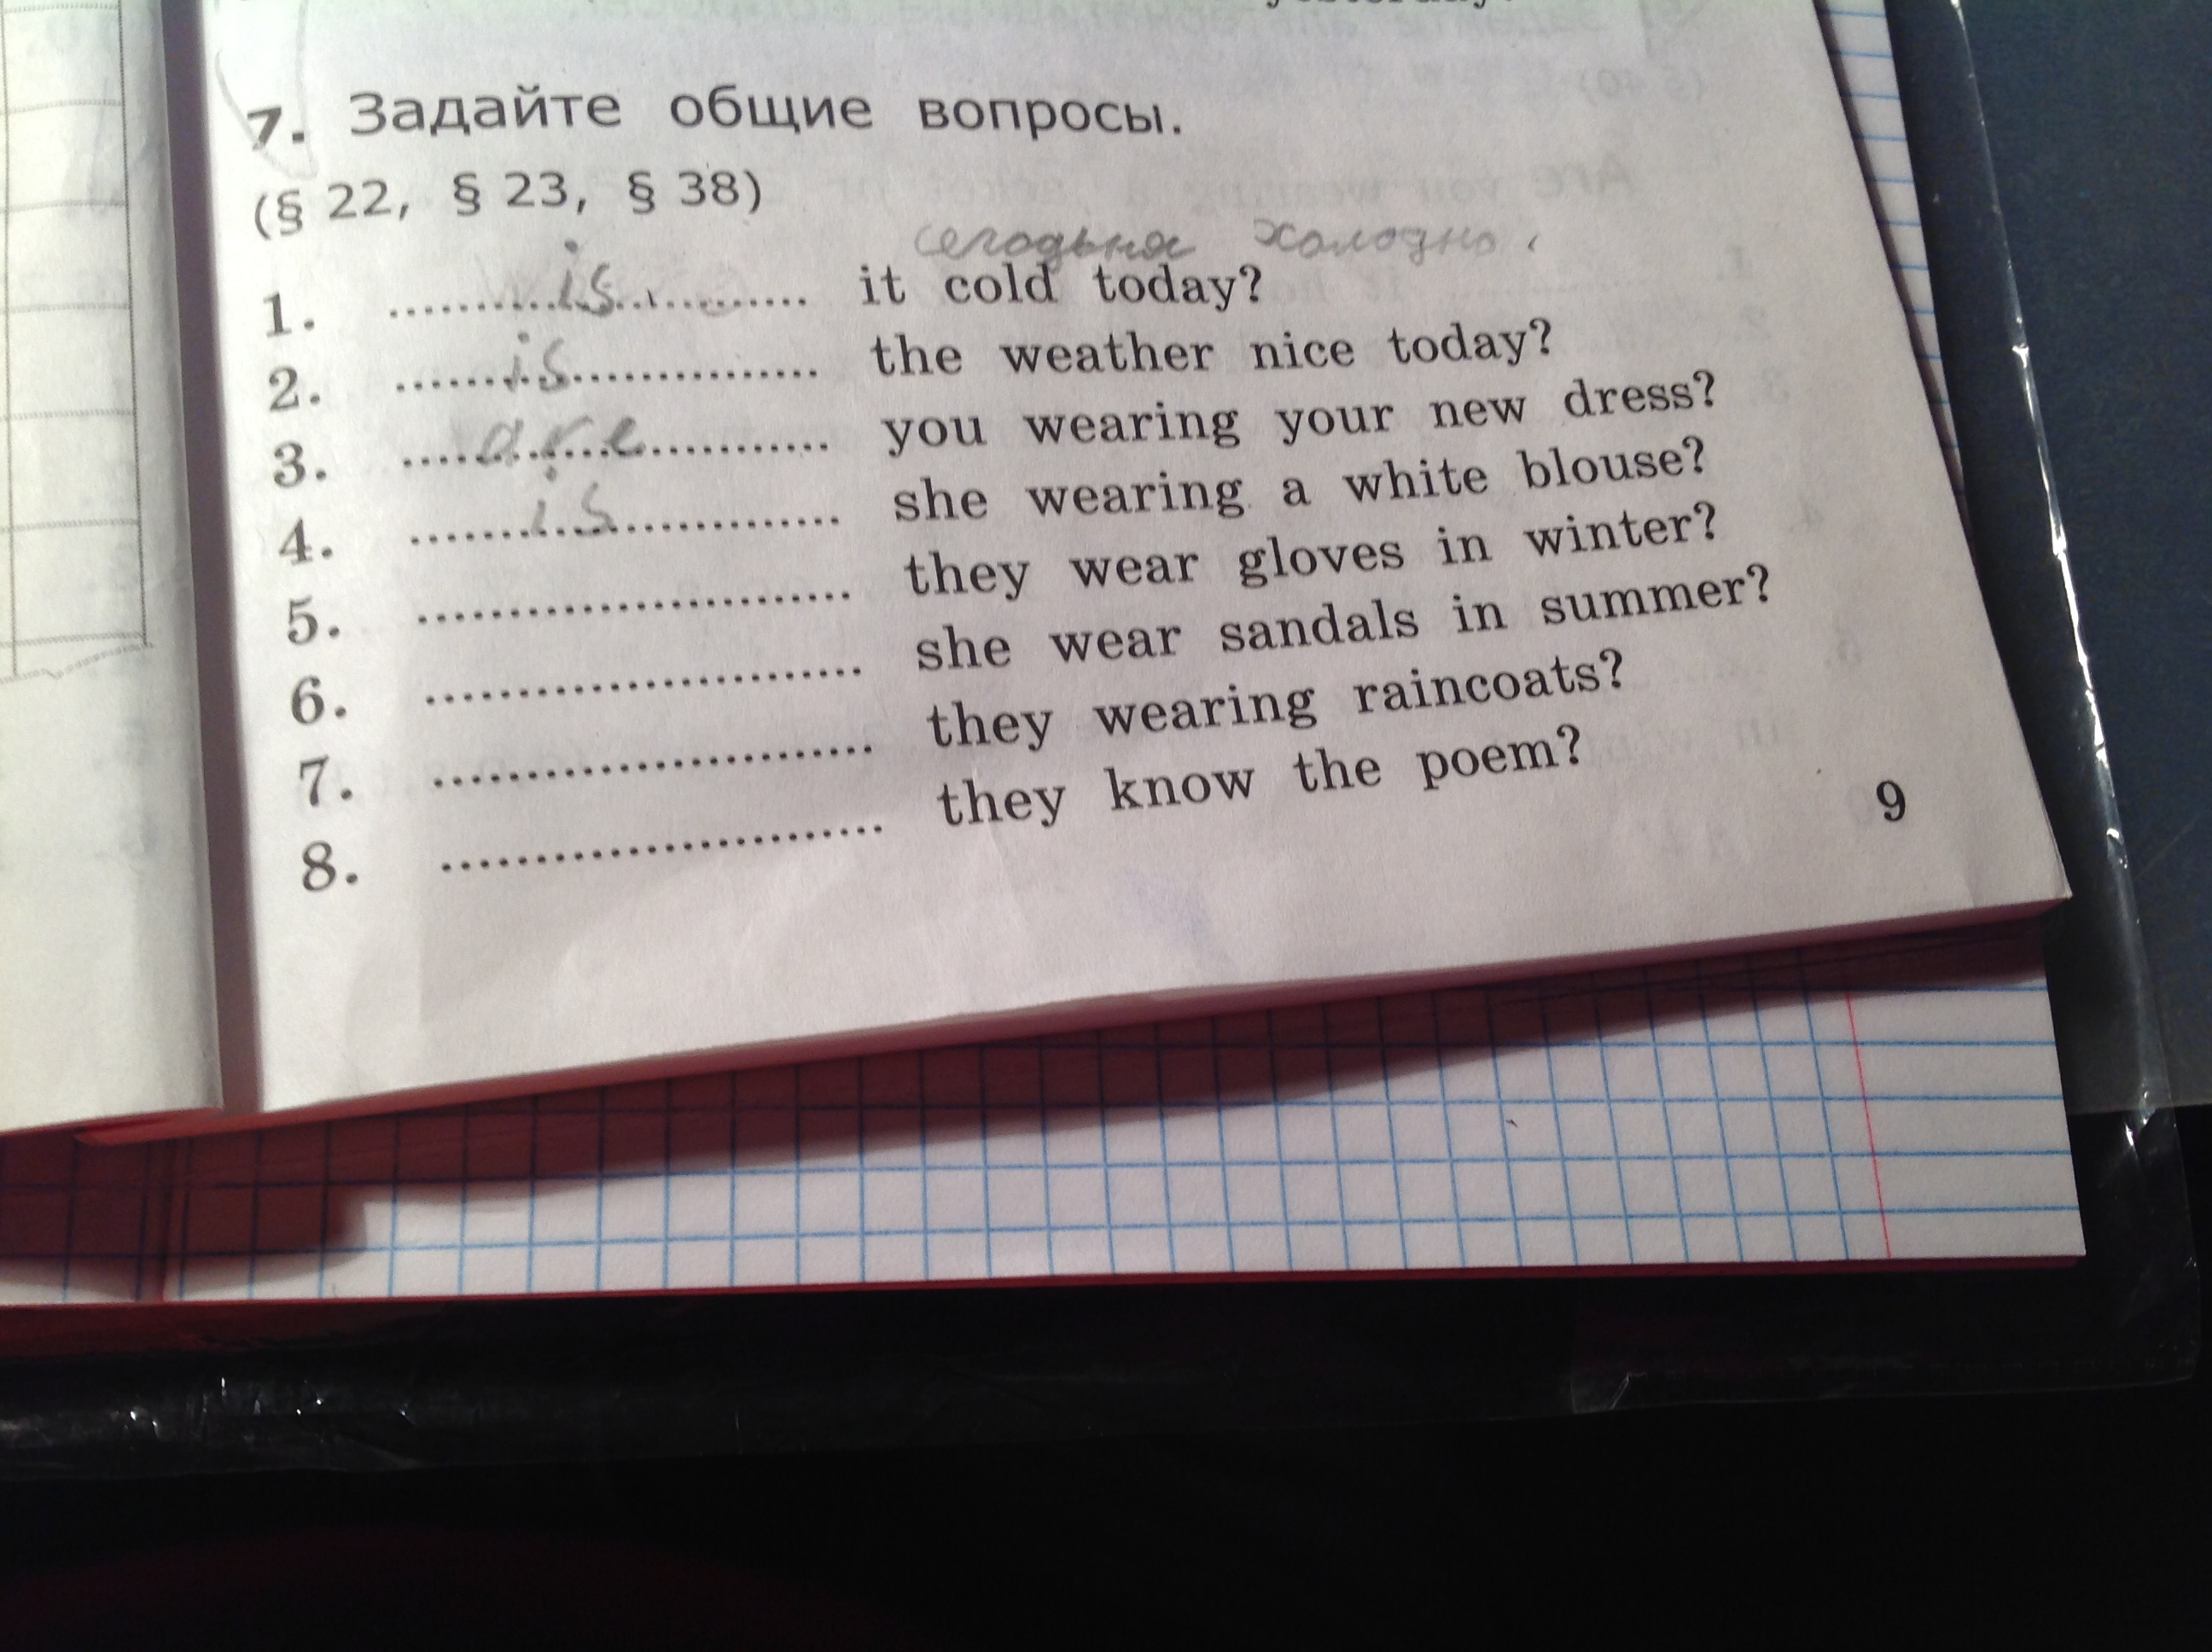 7. Задайте общие вопросы.
(§ 22, § 23, § 38)
сегодьня холодно.
1. ..........is.......... it cold today?
2. ..........is.......... the weather nice today?
3. ..........are.......... you wearing your new dress?
4. ..........is.......... she wearing a white blouse?
5. .......................... they wear gloves in winter?
6. .......................... she wear sandals in summer?
7. .......................... they wearing raincoats?
8. .......................... they know the poem?
9